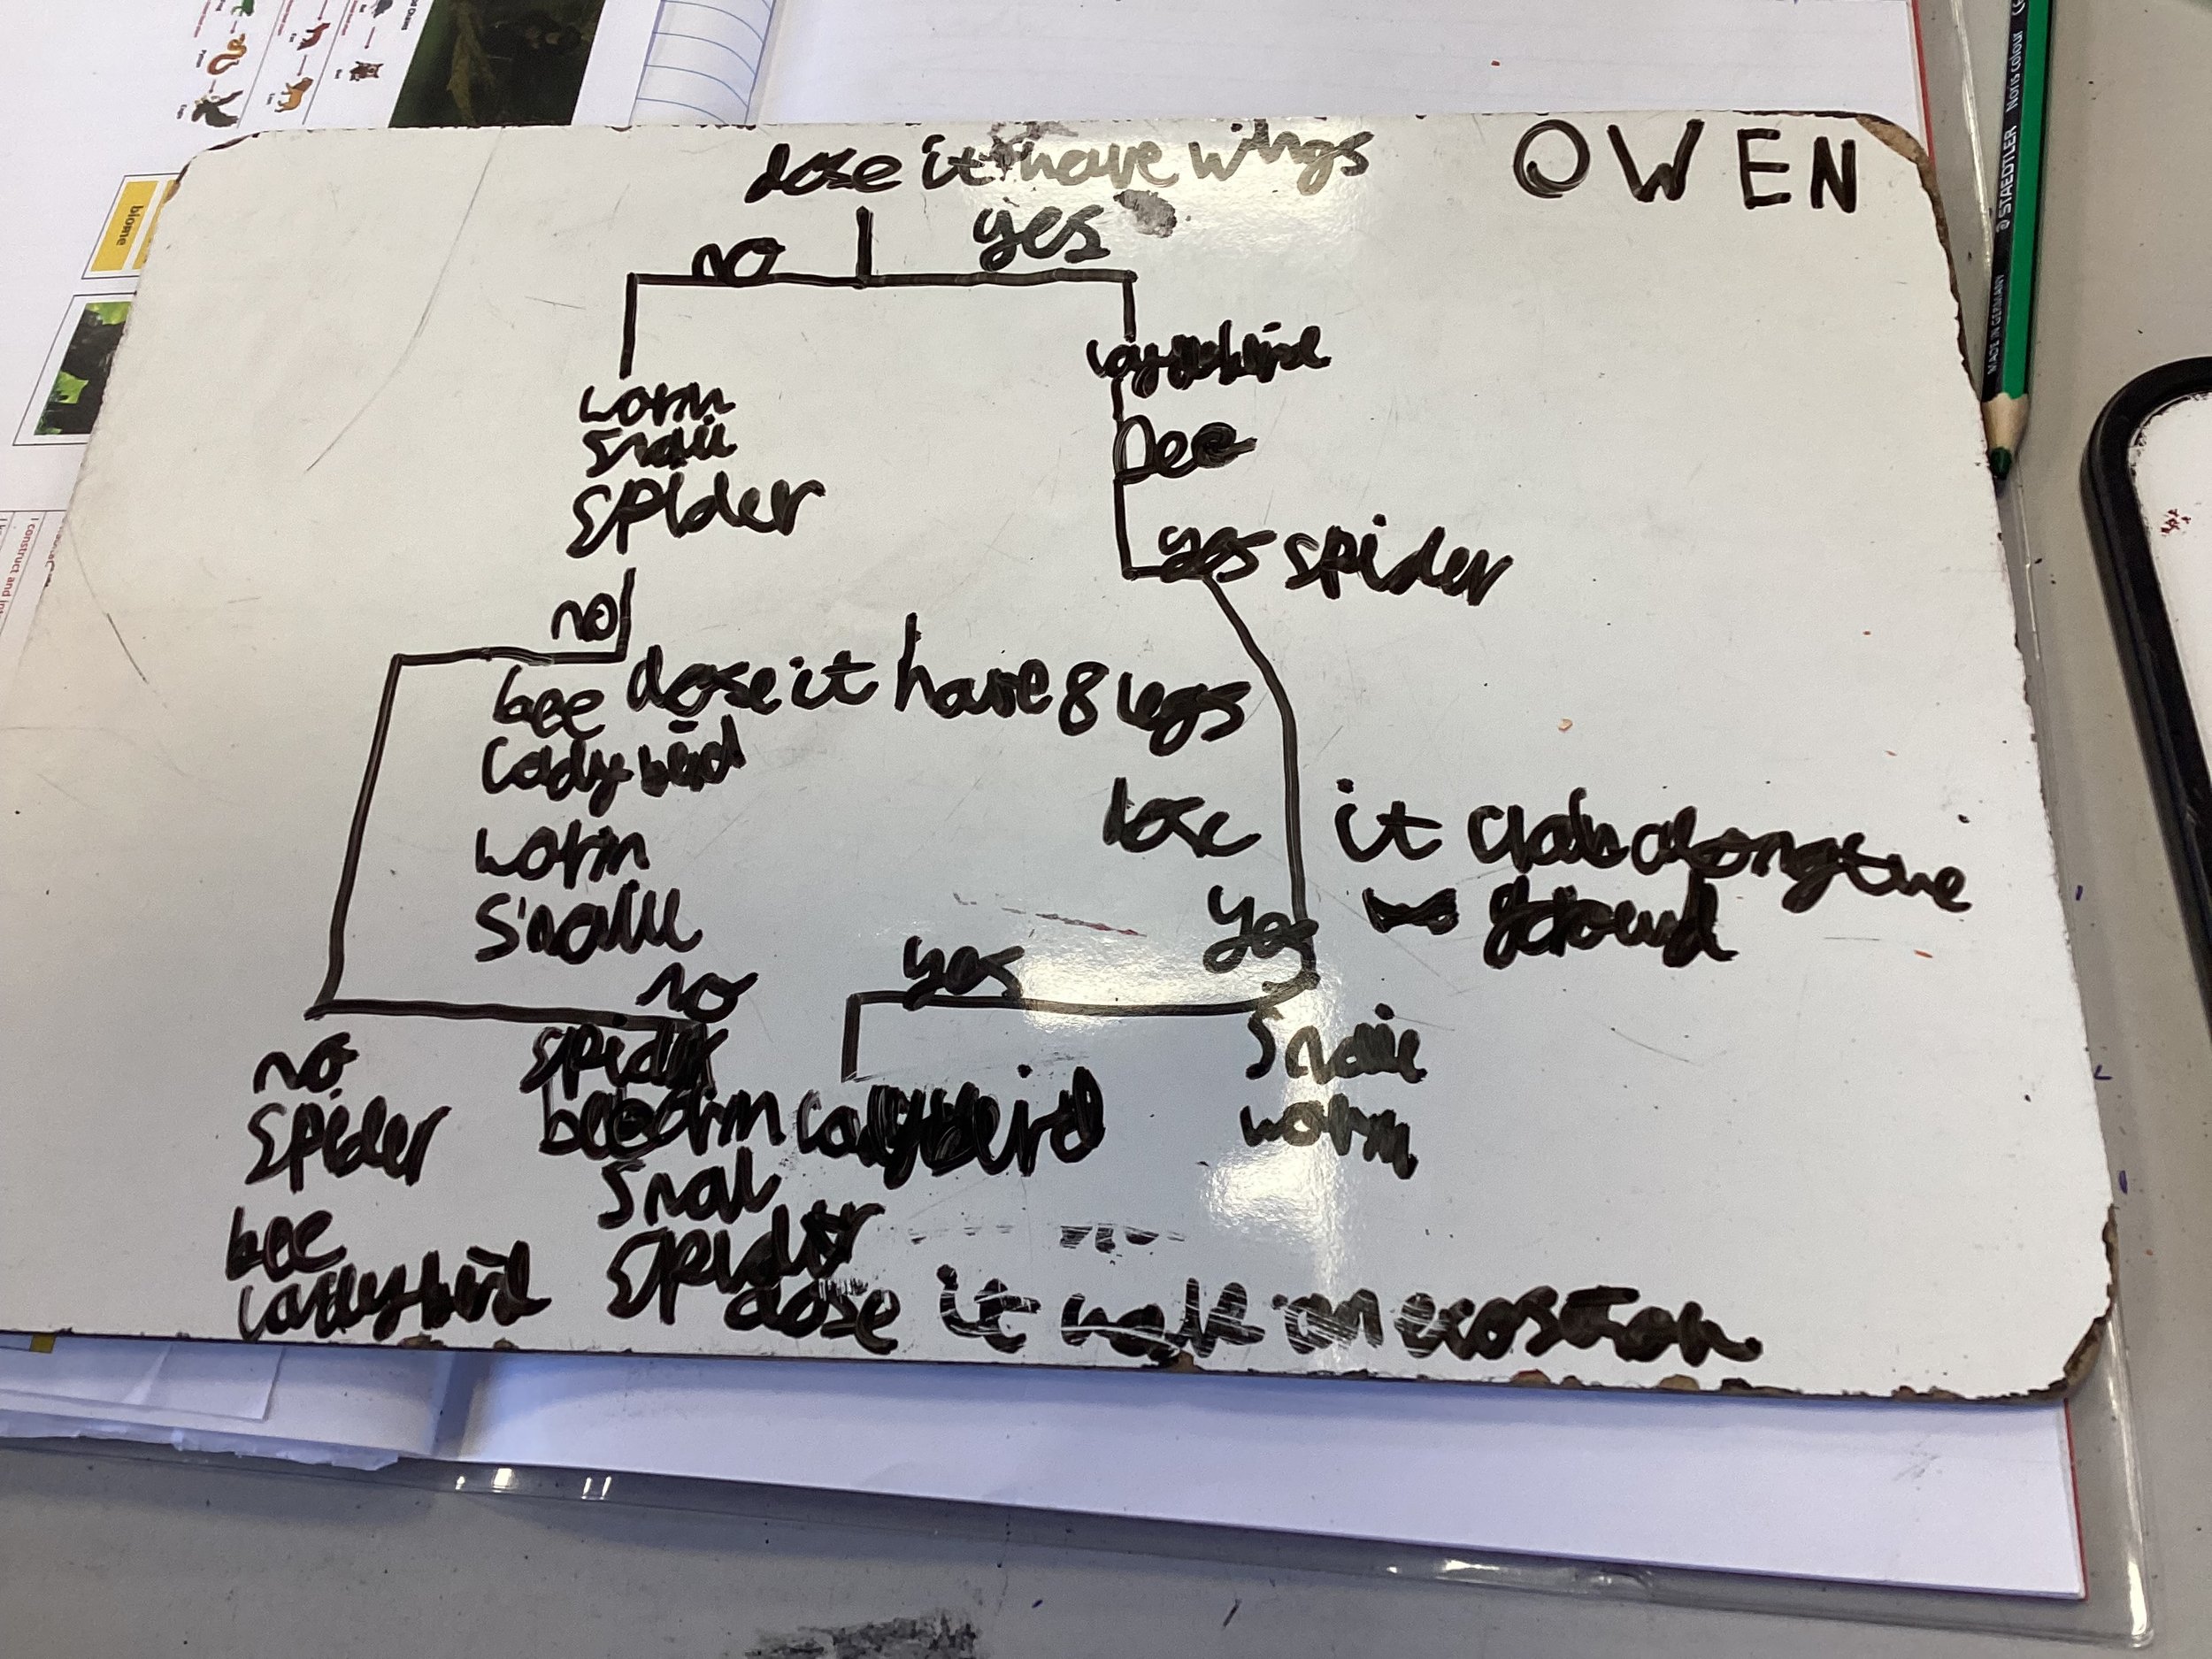 dose it have wings
OWEN
no
yes
worm
snail
spider
bee
yes spider
no
bee dose it have 8 legs
ladybird
dose it along the
ground
worm
snaile
yes
no
yes
no
spider
snaile
spider
bee
ladybird
worm
snail
spider
ladybird
worm
dose it walk on
biome
STAEDTLER Noris colour
MADE IN GERMANY
I construct and int